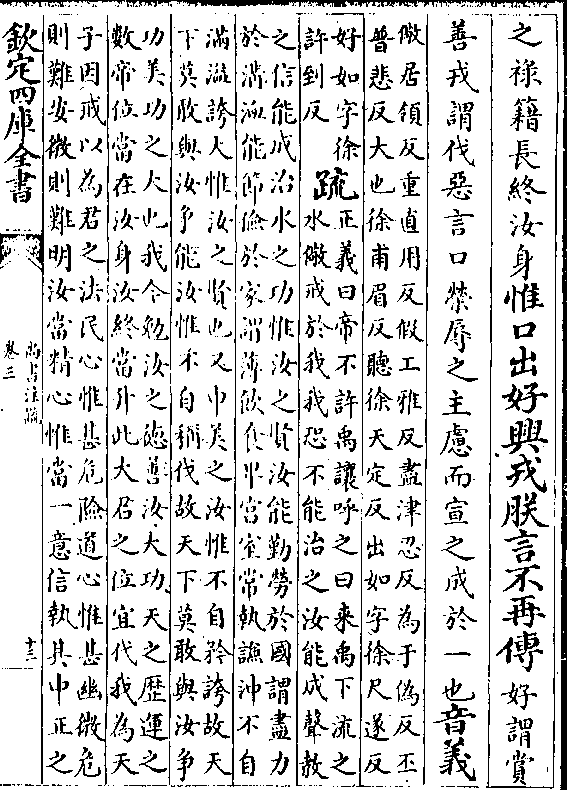 之祿籍長終汝身惟口出好興戎朕言不再傳好謂賞
善戎謂伐惡言口榮辱之主慮而宣之成於一也音義
儆居領反重直用反假工雅反盡津忍反為于偽反丕
普悲反大也徐甫眉反聽徐天定反出如字徐尺遂反
好如字徐
許到反
疏
正義曰帝不許禹讓呼之曰來禹下流之
水儆戒於我我恐不能治之汝能成聲教
之信能成治水之功惟汝之賢汝能勤勞於國謂盡力
於溝洫能節儉於家謂薄飲食卑宮室常執謙沖不自
滿溢誇大惟汝之賢也又申美之汝惟不自矜誇故天
下莫敢與汝爭能汝惟不自稱伐故天下莫敢與汝爭
功美功之大也我今勉汝之德善汝大功天之歷運之
數帝位當在汝身汝終當升此大君之位宜代我為天
子因戒以為君之法民心惟甚危險道心惟甚幽微危
則難安微則難明汝當精心惟當一意信執其中正之
欽定四庫全書
尚書注疏
卷三
十三